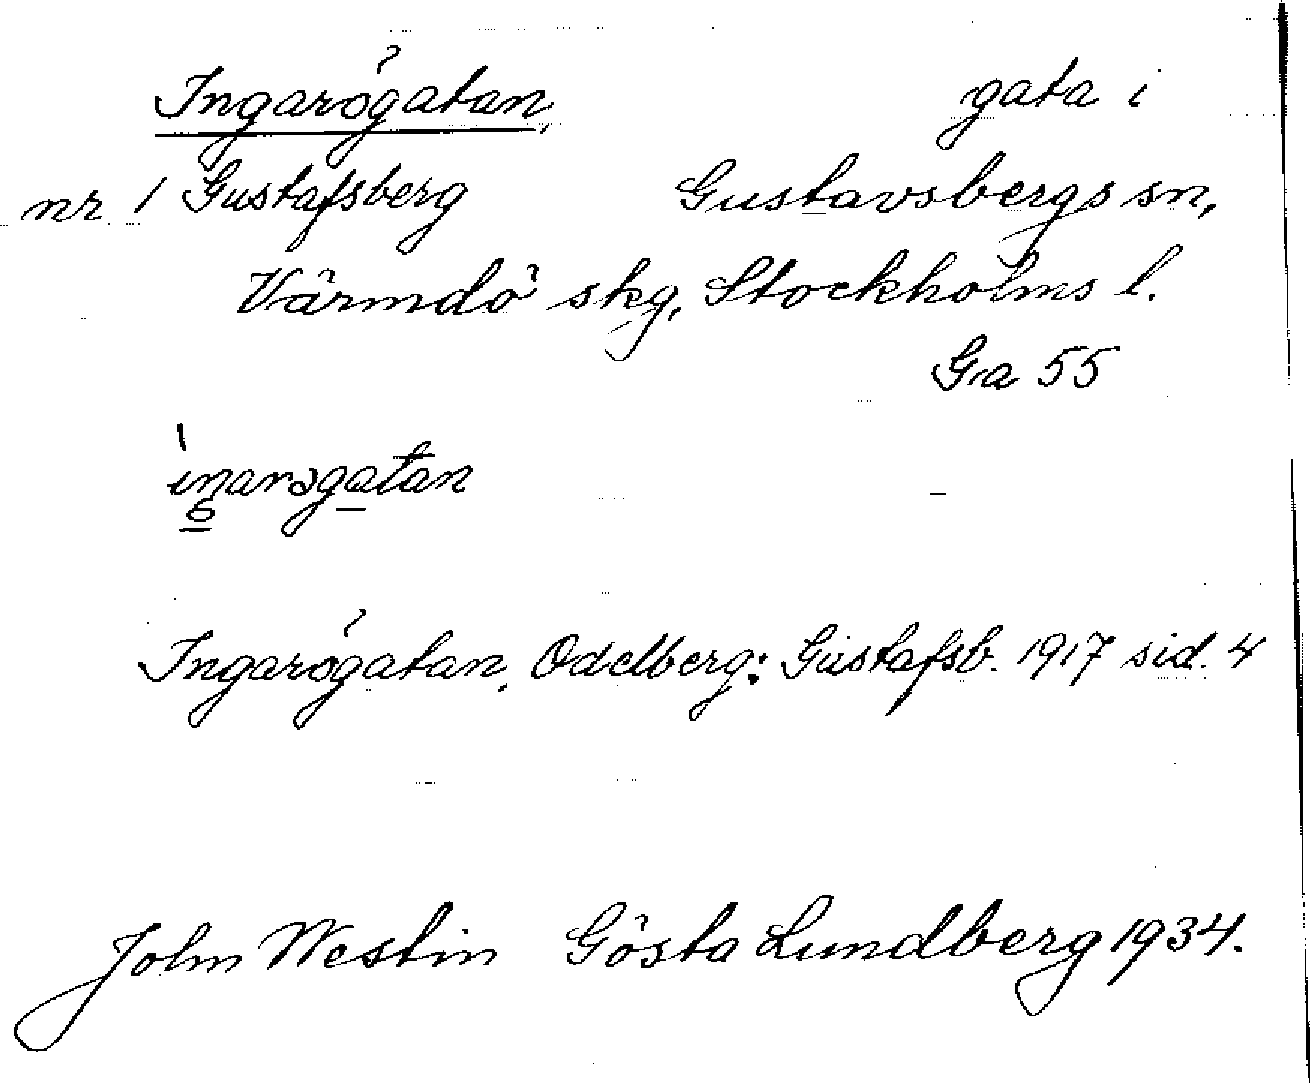 Ingarögatan, gata i
nr 1 Gustafsberg Gustavsbergs sn,
Värmdö skg, Stockholms l.
Ga 55
Ingarögatan, Odelberg: Gustafsb. 1917 sid. 4
John Westin Gösta Lundberg 1934.